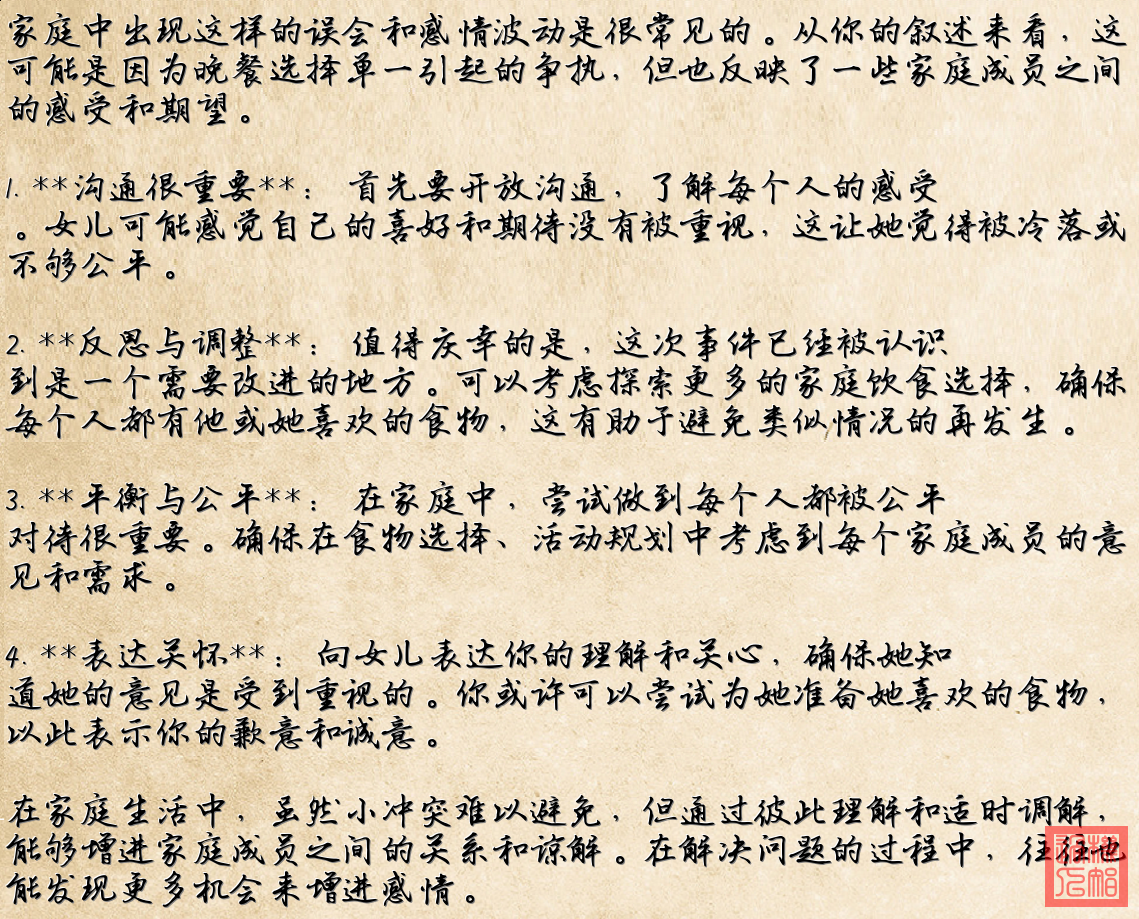 家庭中出现这样的误会和感情波动是很常见的。从你的叙述来看，这
可能是因为晚餐选择单一引起的争执，但也反映了一些家庭成员之间
的感受和期望。
1. **沟通很重要**： 首先要开放沟通，了解每个人的感受
。女儿可能感觉自己的喜好和期待没有被重视，这让她觉得被冷落或
不够公平。
2. **反思与调整**： 值得庆幸的是，这次事件已经被认识
到是一个需要改进的地方。可以考虑探索更多的家庭饮食选择，确保
每个人都有他或她喜欢的食物，这有助于避免类似情况的再发生。
3. **平衡与公平**： 在家庭中，尝试做到每个人都被公平
对待很重要。确保在食物选择、活动规划中考虑到每个家庭成员的意
见和需求。
4. **表达关怀**： 向女儿表达你的理解和关心，确保她知
道她的意见是受到重视的。你或许可以尝试为她准备她喜欢的食物，
以此表示你的歉意和诚意。
在家庭生活中，虽然小冲突难以避免，但通过彼此理解和适时调解，
能够增进家庭成员之间的关系和谅解。在解决问题的过程中，往往也
能发现更多机会来增进感情。